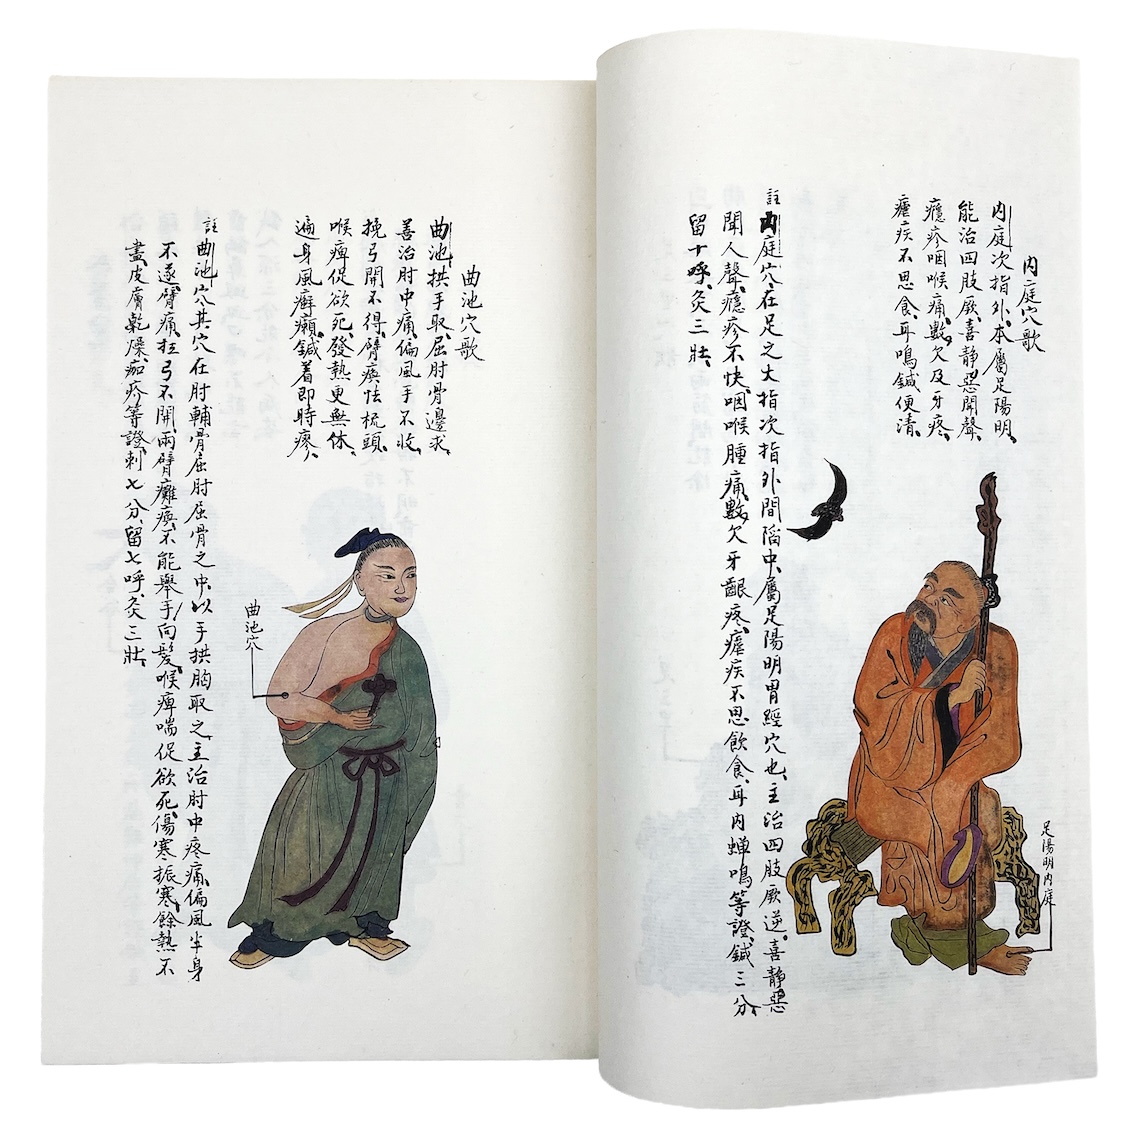 內庭穴歌
內庭次指外、本屬足陽明、
能治四肢厥、喜靜惡聞聲、
癮疹咽喉痛、數欠及牙疼、
瘧疾不思食、耳鳴鍼便清、
註 內庭穴、在足之大指次指外間陷中、屬足陽明胃經穴也、主治四肢厥逆、喜靜惡
聞人聲、癮疹不快、咽喉腫痛、數欠牙齦疼、瘧疾不思飲食、耳內蟬鳴等證、鍼三分、
留十呼、灸三壯、
足陽明內庭
曲池穴歌
曲池拱手取、屈肘骨邊求、
善治肘中痛、偏風手不收、
挽弓開不得、臂瘓怯梳頭、
喉痺促欲死、發熱更無休、
遍身風癬癩、鍼着即時瘳、
註 曲池穴、其穴在肘輔骨屈肘屈骨之中、以手拱胸取之、主治肘中疼痛、偏風半身
不遂、臂痛、拉弓不開、兩臂癱瘓、不能舉手向髮、喉痺喘促欲死、傷寒振寒、餘熱不
盡、皮膚乾燥、痂疥等證、刺七分、留七呼、灸三壯、
曲池穴